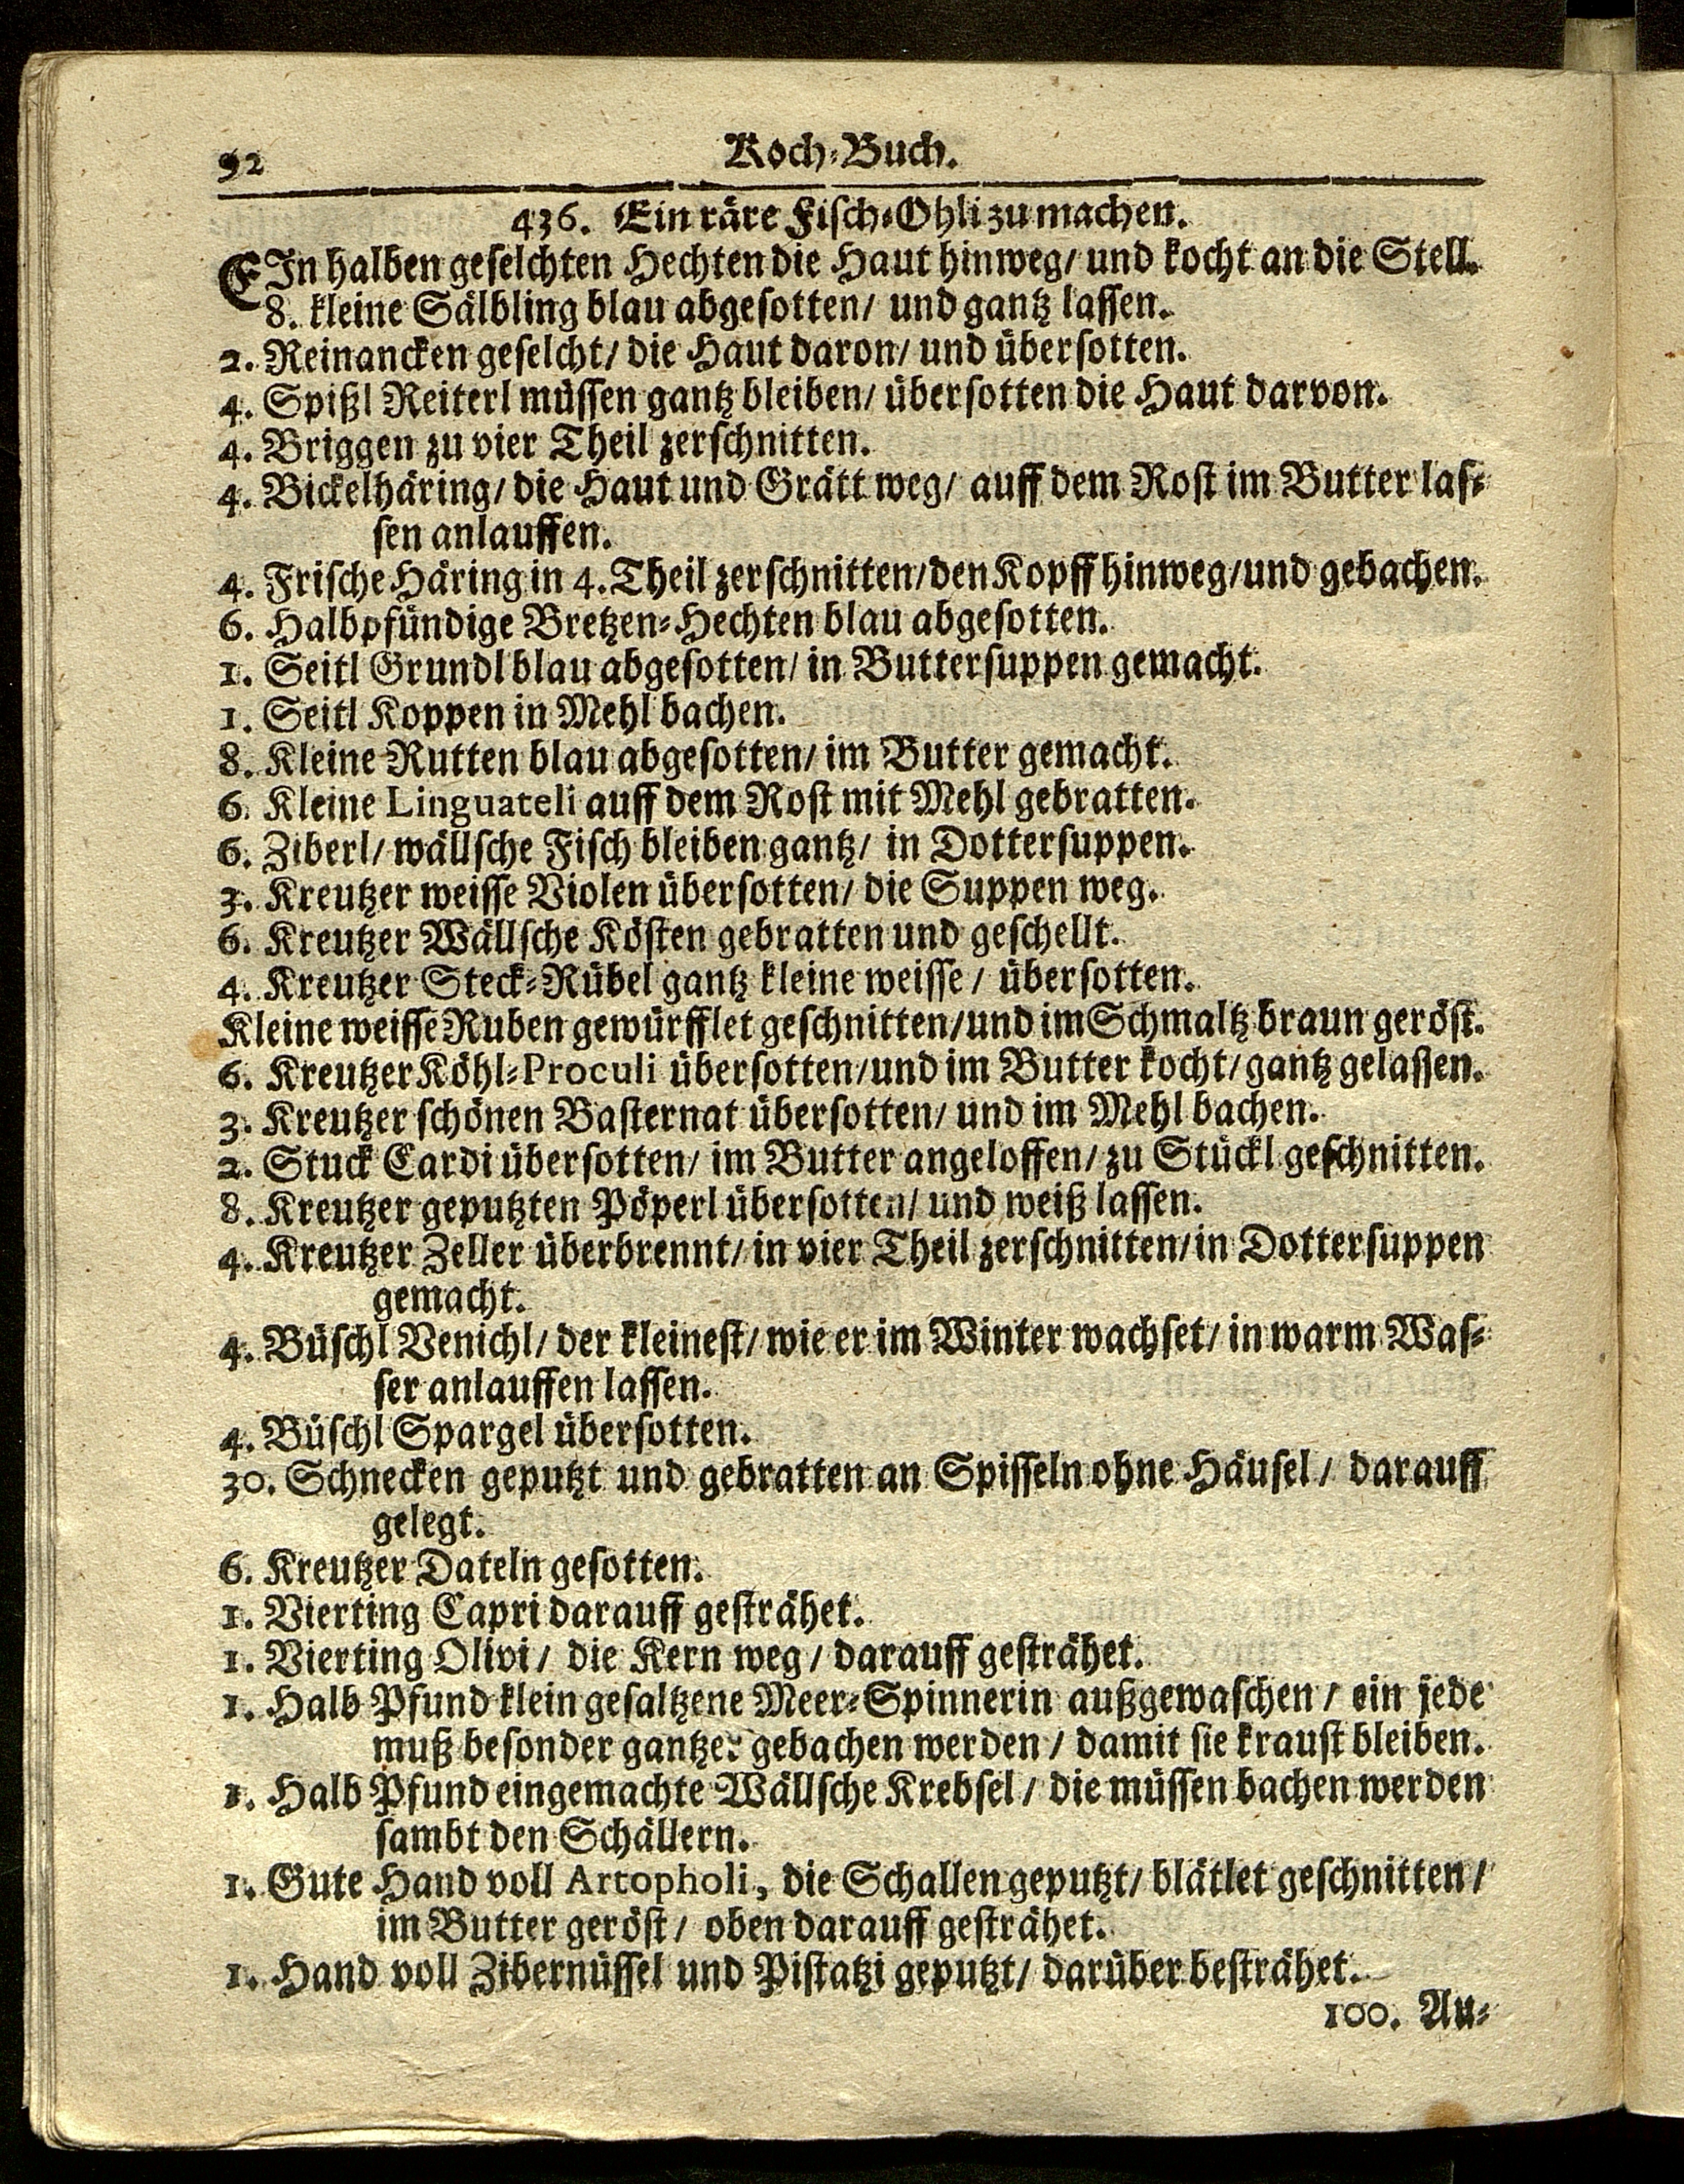 92 Koch-Buch.
436. Ein räre Fisch-Ohli zu machen.
EIn halben geselchten Hechten die Haut hinweg/ und kocht an die Stell.
8. kleine Sälbling blau abgesotten/ und gantz lassen.
2. Reinancken geselcht/ die Haut daron/ und übersotten.
4. Spißl Reiterl müssen gantz bleiben/ übersotten die Haut darvon.
4. Briggen zu vier Theil zerschnitten.
4. Bickelhäring/ die Haut und Grätt weg/ auff dem Rost im Butter las-
sen anlauffen.
4. Frische Häring in 4. Theil zerschnitten/ den Kopff hinweg/ und gebachen.
6. Halbpfündige Bretzen-Hechten blau abgesotten.
1. Seitl Grundl blau abgesotten/ in Buttersuppen gemacht.
1. Seitl Koppen in Mehl bachen.
8. Kleine Rutten blau abgesotten/ im Butter gemacht.
6. Kleine Linguateli auff dem Rost mit Mehl gebratten.
6. Ziberl/ wällsche Fisch bleiben gantz/ in Dottersuppen.
3. Kreutzer weisse Violen übersotten/ die Suppen weg.
6. Kreutzer Wällsche Kösten gebratten und geschellt.
4. Kreutzer Steck-Rübel gantz kleine weisse / übersotten.
Kleine weisse Ruben gewürfflet geschnitten/ und im Schmaltz braun geröst.
6. Kreutzer Köhl-Proculi übersotten/ und im Butter kocht/ gantz gelassen.
3. Kreutzer schönen Basternat übersotten/ und im Mehl bachen.
2. Stuck Cardi übersotten/ im Butter angeloffen/ zu Stückl geschnitten.
8. Kreutzer geputzten Pöperl übersotten/ und weiß lassen.
4. Kreutzer Zeller überbrennt/ in vier Theil zerschnitten/ in Dottersuppen
gemacht.
4. Büschl Venichl/ der kleinest/ wie er im Winter wachset/ in warm Was-
ser anlauffen lassen.
4. Büschl Spargel übersotten.
30. Schnecken geputzt und gebratten an Spisseln ohne Häusel / darauff
gelegt.
6. Kreutzer Dateln gesotten.
1. Vierting Capri darauff gesträhet.
1. Vierting Olivi / die Kern weg / darauff gesträhet.
1. Halb Pfund klein gesaltzene Meer-Spinnerin außgewaschen / ein jede
muß besonder gantzer gebachen werden / damit sie kraust bleiben.
1. Halb Pfund eingemachte Wällsche Krebsel / die müssen bachen werden
sambt den Schällern.
1. Gute Hand voll Artopholi, die Schallen geputzt/ blätlet geschnitten /
im Butter geröst / oben darauff gesträhet.
1. Hand voll Zibernüssel und Pistatzi geputzt/ darüber besträhet.
100. Au-